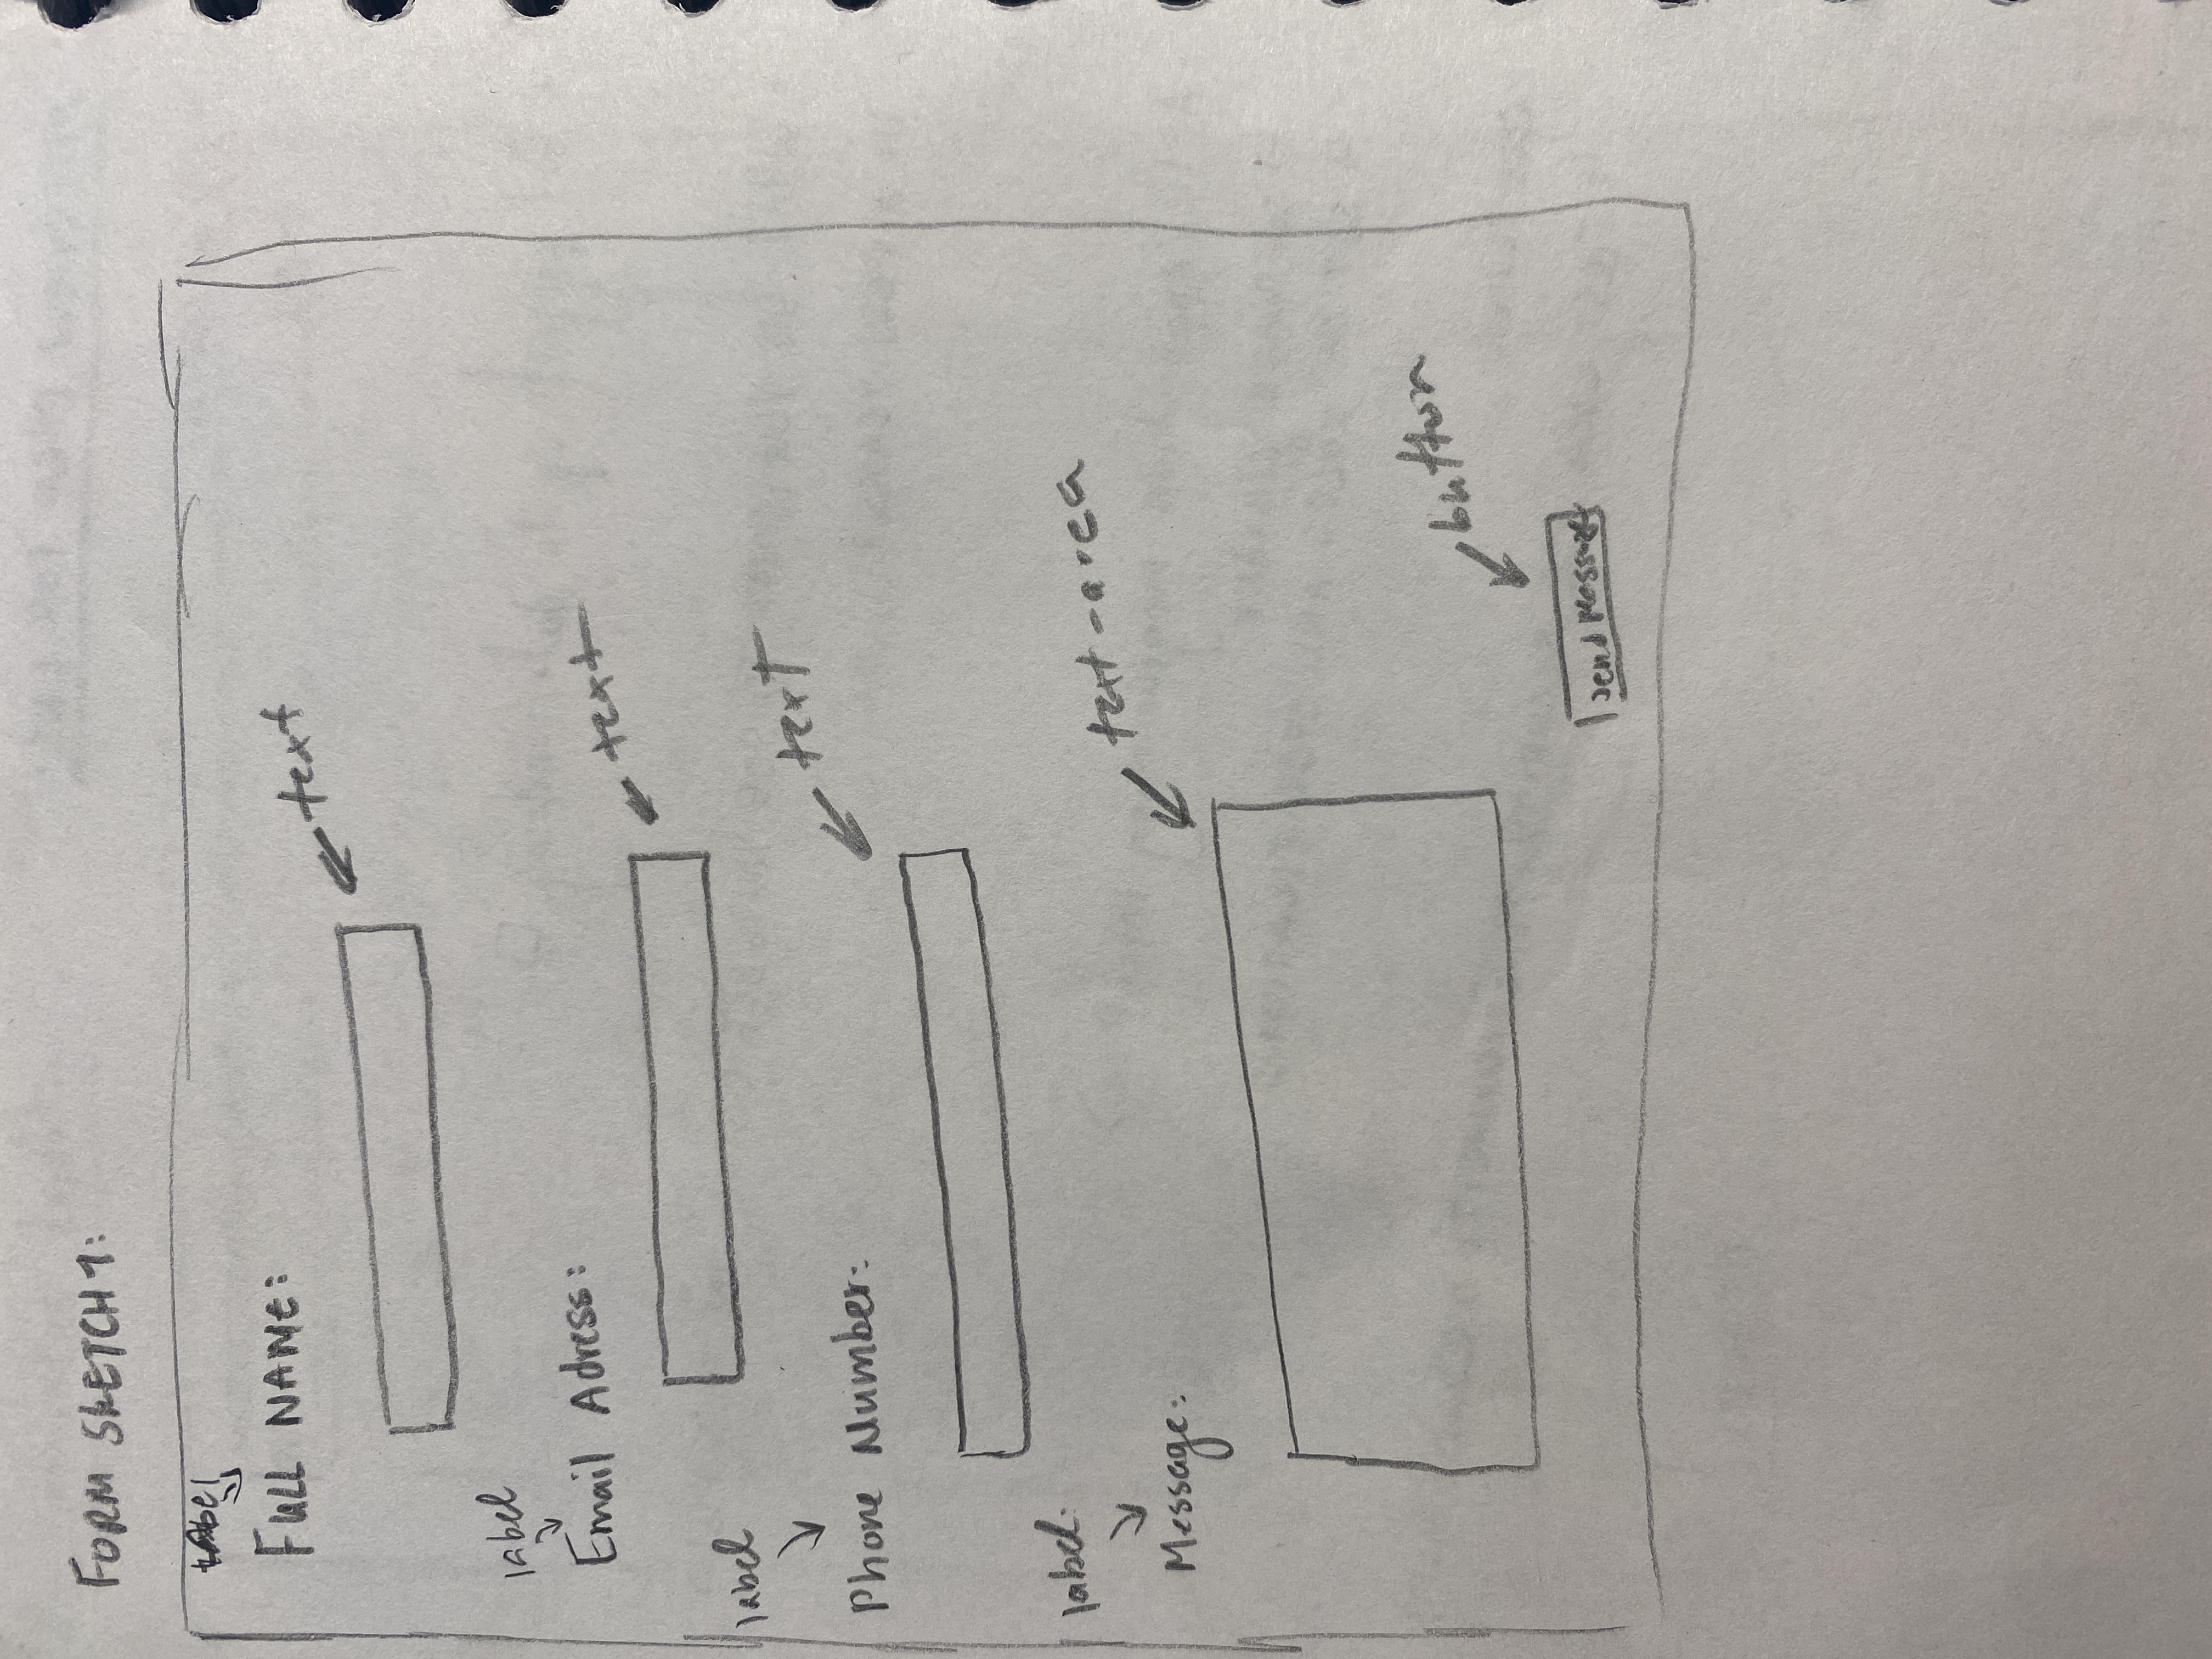 FORM SKETCH 1:
label
FULL NAME:
text
label
Email Adress:
text
label
Phone Number:
text
label.
Message:
text-area
button
Send Message